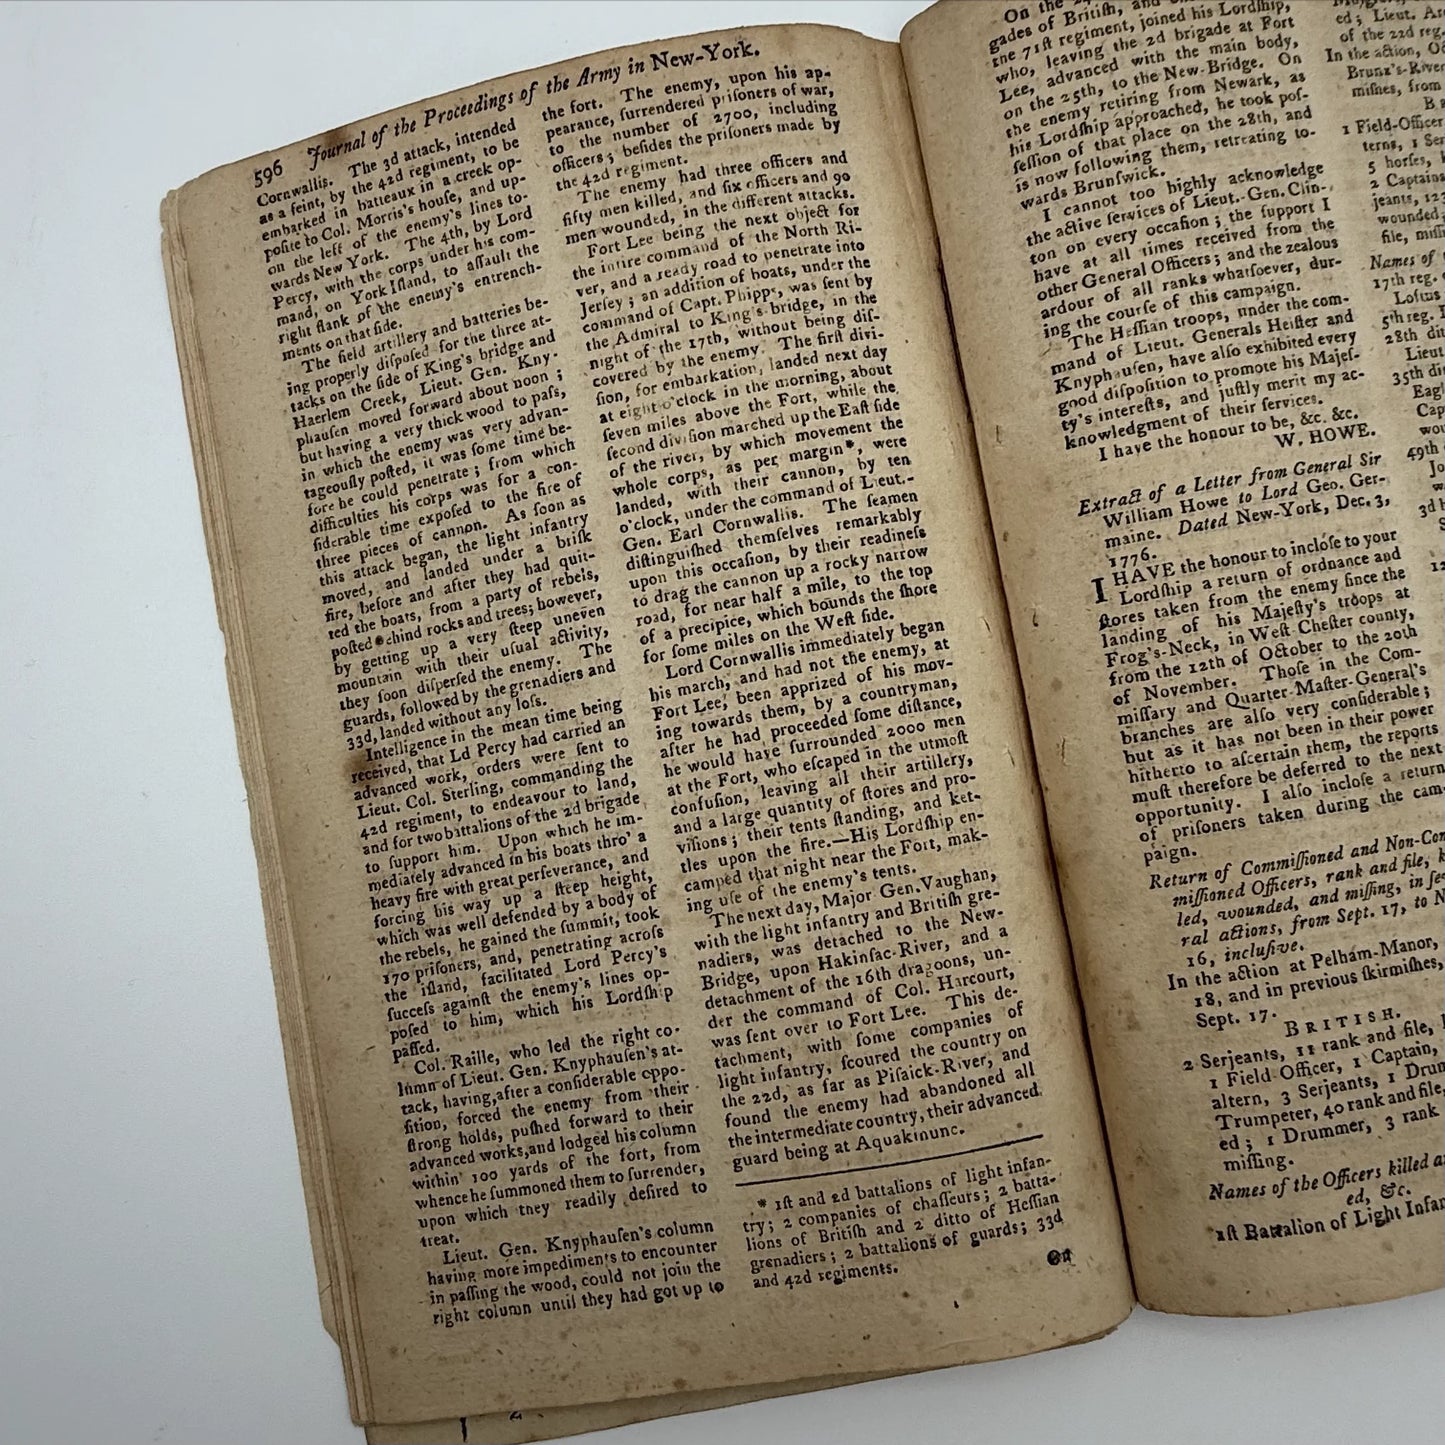 596 Journal of the Proceedings of the Army in New-York.
Cornwallis. The 3d attack, intended
as a feint, by the 42d regiment, to be
embarked in batteaux in a creek op-
poſite to Col. Morris's houſe, and up-
on the left of the enemy's lines to-
wards New York. The 4th, by Lord
Percy, with the corps under his com-
mand, on York Iſland, to aſſault the
right flank of the enemy's entrench-
ments on that ſide.
The field artillery and batteries be-
ing properly diſpoſed for the three at-
tacks on the ſide of King's bridge and
Haerlem Creek, Lieut. Gen. Kny-
phauſen moved forward about noon;
but having a very thick wood to paſs,
in which the enemy was very advan-
tageouſly poſted, it was ſome time be-
fore he could penetrate; from which
difficulties his corps was for a con-
ſiderable time expoſed to the fire of
three pieces of cannon. As ſoon as
this attack began, the light infantry
moved, and landed under a briſk
fire, before and after they had quit-
ted the boats, from a party of rebels,
poſted behind rocks and trees; however,
by getting up a very ſteep uneven
mountain with their uſual activity,
they ſoon diſperſed the enemy. The
guards, followed by the grenadiers and
33d, landed without any loſs.
Intelligence in the mean time being
received, that Ld Percy had carried an
advanced work, orders were ſent to
Lieut. Col. Sterling, commanding the
42d regiment, to endeavour to land,
and for two battalions of the 2d brigade
to ſupport him. Upon which he im-
mediately advanced in his boats thro' a
heavy fire with great perſeverance, and
forcing his way up a ſteep height,
which was well defended by a body of
the rebels, he gained the ſummit, took
170 priſoners, and, penetrating acroſs
the iſland, facilitated Lord Percy's
ſucceſs againſt the enemy's lines op-
poſed to him, which his Lordſhip
paſſed.
Col. Raille, who led the right co-
lumn of Lieut. Gen. Knyphauſen's at-
tack, having, after a conſiderable oppo-
ſition, forced the enemy from their
ſtrong holds, puſhed forward to their
advanced works, and lodged his column
within 100 yards of the fort, from
whence he ſummoned them to ſurrender,
upon which they readily deſired to
treat.
Lieut. Gen. Knyphauſen's column
having more impediments to encounter
in paſſing the wood, could not join the
right column until they had got up to
the fort. The enemy, upon his ap-
pearance, ſurrendered priſoners of war,
to the number of 2700, including
officers; beſides the priſoners made by
the 42d regiment.
The enemy had three officers and
fifty men killed, and ſix officers and 90
men wounded, in the different attacks.
Fort Lee being the next object for
the intire command of the North Ri-
ver, and a ready road to penetrate into
Jerſey; an addition of boats, under the
command of Capt. Phipps, was ſent by
the Admiral to King's bridge, in the
night of the 17th, without being diſ-
covered by the enemy. The firſt divi-
ſion, for embarkation, landed next day
at eight o'clock in the morning, about
ſeven miles above the Fort, while the
ſecond diviſion marched up the Eaſt ſide
of the river, by which movement the
whole corps, as per margin*, were
landed, with their cannon, by ten
o'clock, under the command of Lieut.-
Gen. Earl Cornwallis. The ſeamen
diſtinguiſhed themſelves remarkably
upon this occaſion, by their readineſs
to drag the cannon up a rocky narrow
road, for near half a mile, to the top
of a precipice, which bounds the ſhore
for ſome miles on the Weſt ſide.
Lord Cornwallis immediately began
his march, and had not the enemy, at
Fort Lee, been apprized of his mov-
ing towards them, by a countryman,
after he had proceeded ſome diſtance,
he would have ſurrounded 2000 men
at the Fort, who eſcaped in the utmoſt
confuſion, leaving all their artillery,
and a large quantity of ſtores and pro-
viſions; their tents ſtanding, and ket-
tles upon the fire.—His Lordſhip en-
camped that night near the Fort, mak-
ing uſe of the enemy's tents.
The next day, Major Gen. Vaughan,
with the light infantry and Britiſh gre-
nadiers, was detached to the New-
Bridge, upon Hakinſac-River, and a
detachment of the 16th dragoons, un-
der the command of Col. Harcourt,
was ſent over to Fort Lee. This de-
tachment, with ſome companies of
light infantry, ſcoured the country on
the 22d, as far as Piſaick-River, and
found the enemy had abandoned all
the intermediate country, their advanced
guard being at Aquakinunc.
* 1ſt and 2d battalions of light infan-
try; 2 companies of chaſſeurs; 2 batta-
lions of Britiſh and 2 ditto of Heſſian
grenadiers; 2 battalions of guards; 33d
and 42d regiments.
On
On the 24
gades of Britiſh, and
the 71ſt regiment, joined his Lordſhip,
who, leaving the 2d brigade at Fort
Lee, advanced with the main body,
on the 25th, to the New-Bridge. On
the enemy retiring from Newark, as
his Lordſhip approached, he took poſ-
ſeſſion of that place on the 28th, and
is now following them, retreating to-
wards Brunſwick.
I cannot too highly acknowledge
the active ſervices of Lieut.-Gen. Clin-
ton on every occaſion; the ſupport I
have at all times received from the
other General Officers; and the zealous
ardour of all ranks whatſoever, dur-
ing the courſe of this campaign.
The Heſſian troops, under the com-
mand of Lieut. Generals Heiſter and
Knyphauſen, have alſo exhibited every
good diſpoſition to promote his Majeſ-
ty's intereſts, and juſtly merit my ac-
knowledgment of their ſervices.
I have the honour to be, &c. &c.
W. HOWE.
Extract of a Letter from General Sir
William Howe to Lord Geo. Ger-
maine. Dated New-York, Dec. 3,
1776.
I HAVE the honour to incloſe to your
Lordſhip a return of ordnance and
ſtores taken from the enemy ſince the
landing of his Majeſty's troops at
Frog's-Neck, in Weſt Cheſter county,
from the 12th of October to the 20th
of November. Thoſe in the Com-
miſſary and Quarter-Maſter-General's
branches are alſo very conſiderable;
but as it has not been in their power
hitherto to aſcertain them, the reports
muſt therefore be deferred to the next
opportunity. I alſo incloſe a return
of priſoners taken during the cam-
paign.
Return of Commiſſioned and Non-Com
miſſioned Officers, rank and file, k
led, wounded, and miſſing, in ſe
ral actions, from Sept. 17, to N
16, incluſive.
In the action at Pelham-Manor,
18, and in previous ſkirmiſhes,
Sept. 17.
BRITISH.
2 Serjeants, 11 rank and file,
1 Field-Officer, 1 Captain,
altern, 3 Serjeants, 1 Drum
Trumpeter, 40 rank and file,
ed; 1 Drummer, 3 rank
miſſing.
Names of the Officers killed a
ed, &c.
1ſt Battalion of Light Infan
ed; Lieut. A
of the 22d reg.
In the action, O
Brunx's-River
miſhes, from
1 Field-Officer
terns, 1 Ser
5 horſes,
2 Captains
jeants, 123
wounded;
file, miſſi
Names of
17th reg.
Loftus
5th reg.
28th di
Lieut
35th di
Eag
Cap
wou
49th
Jo
3d